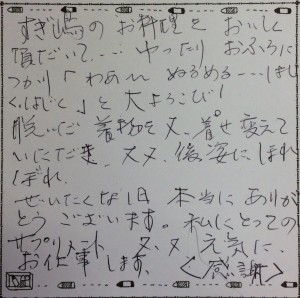 すぎ嶋のお料理をおいしく
頂だいて.... ゆったりおふろに
つかり「わあ〜ぬるめる…はじ
くはじく」と大よろこび!
脱いだ着物を又、着せ変えて
いただき、又々、後姿にほれ
ぼれ。
ぜいたくな1日 本当にありが
とうございます。私にとっての
サプリメント 又々元気に
お仕事します。
<感謝>